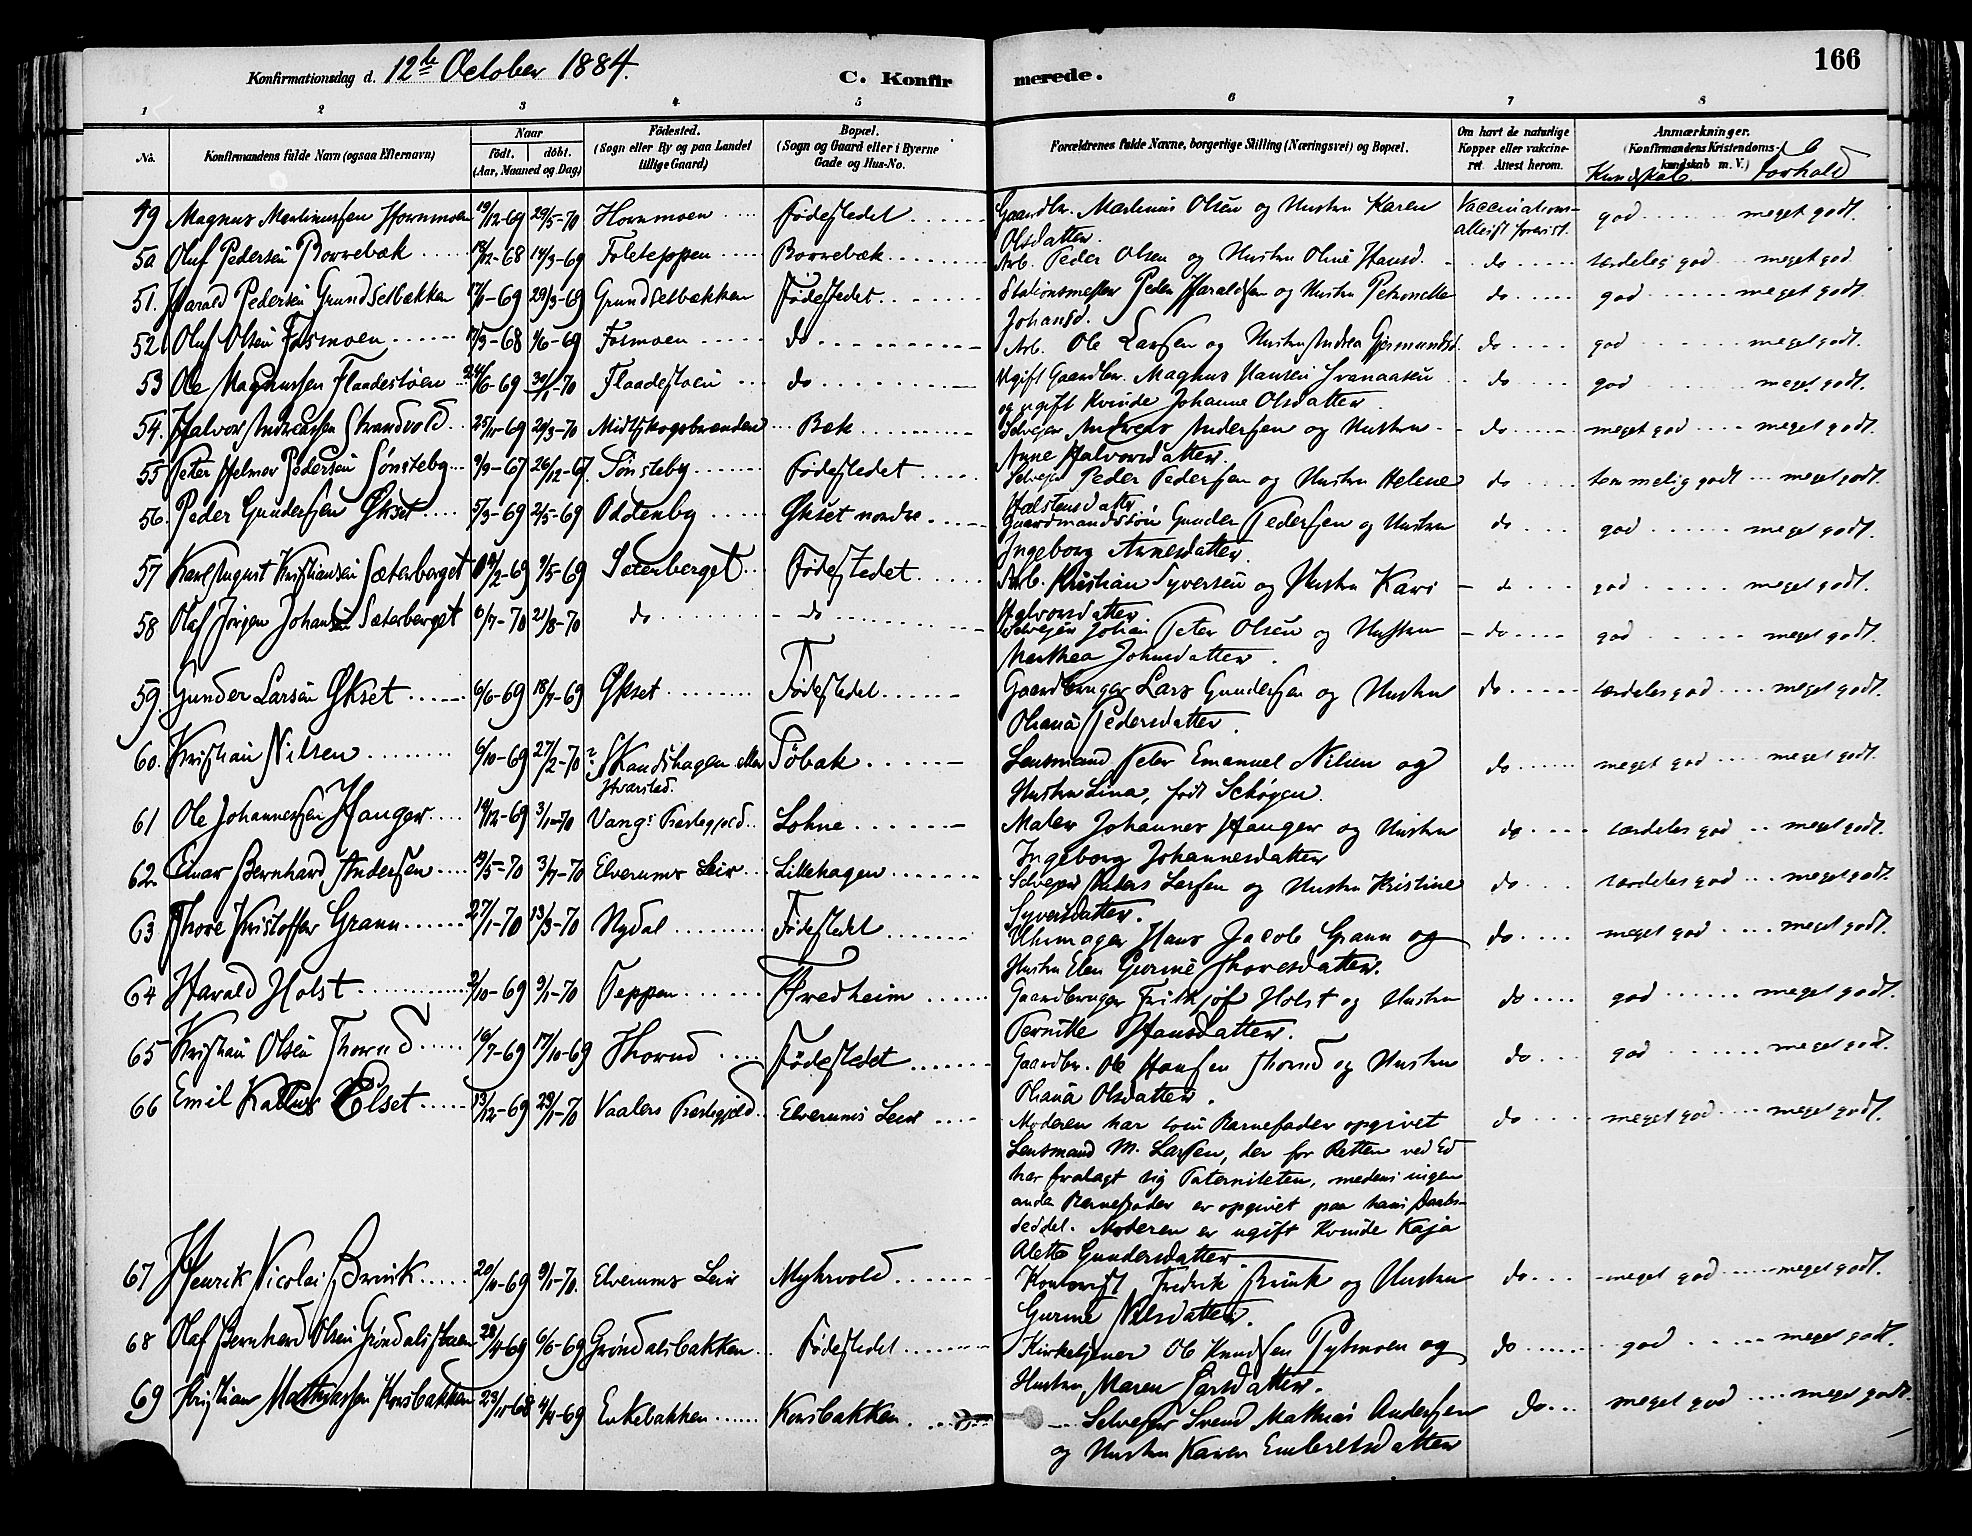 166
Konfirmationsdag d. 12te October 1884.
C. Konfirmerede.
1 2 3 4 5 6 7 8
No. Konfirmandens fulde Navn (ogsaa Efternavn) Naar født. døbt. (Aar, Maaned og Dag) Fødested. (Sogn eller By og paa Landet tillige Gaard) Bopæl. (Sogn og Gaard eller i Byerne Gade og Hus-No.) Forældrenes fulde Navne, borgerlige Stilling (Næringsvei) og Bopæl. Om havt de naturlige Kopper eller vaccineret. Attest herom. Anmærkninger. (Konfirmandens Kristendomskundskab m. V.)
Kundskab. Forhold
49 Magnus Martinussen Hornmoen 19/12-69 29/5-70 Hornmoen Fødestedet Gaardbr. Martinus Olsen og Hustru Karen Vaccinations- god meget godt.
Olsdatter. attest forevist.
50 Oluf Pedersen Borrebæk 13/12-68 14/3-69 Foleteppen Borrebæk Arb. Peder Olsen og Hustru Oline Hansd. do særdeles god meget god
51. Harald Pedersen Grundsetbækken 17/1-69 29/3-69 Grundsetbækken Fødestedet Stationsmester Peder Haraldsen og Hustru Petronelle do god meget godt.
Johansd.
52 Oluf Olsen Fosmoen /3-68 /6-69 Fosmoen do Arb. Ole Larsen og Hustru Andrea Gjermundsd. do god meget godt.
53 Ole Magnussen Flaadestøen 24/6-69 30/1-70 Flaadestøen do Ugift Gaardbr. Magnus Hansen Svenaasen do god meget godt.
og ugift Kvinde Johanne Olsdatter.
54. Halvor Andreassen Strandvold 25/11-69 29/3-70 Midtskogsbrænden Bæk Selveier Andreas Andersen og Hustru do meget god meget godt.
Anne Halvorsdatter.
55 Peter Helmer Pedersen Sønsteby 9/9-67 26/12-67 Sønsteby Fødestedet Selveier Peder Pedersen og Hustru Helene do temmelig godt meget godt.
Halstensdatter
56. Peder Gundersen Øxset 5/3-69 2/5-69 Oddenby Øxset nordre Gaardmandssøn Gunder Pedersen og Hustru do god meget godt.
Ingeborg Arnesdatter.
57 Karl August Kristiansen Sæterberget /2-69 9/5-69 Sæterberget Fødestedet Arb. Kristian Syversen og Hustru Kari do god meget godt.
Halvorsdatter.
58 Olaf Jørgen Johansen Sæterberget 6/7-70 21/8-70 do do Selveier Johan Peter Olsen og Hustru do god meget godt.
Marthea Johnsdatter.
59. Gunder Larsen Økset 6/6-69 18/7-69 Økset Fødestedet Gaardbruger Lars Gundersen og Hustru do særdeles god meget godt.
Oliana Pedersdatter.
60. Kristian Nilsen 6/10-69 27/2-70 ? Skandshagen eller Tøbak Lensmand Peter Emanuel Nilsen og do meget god meget godt.
Hvarstad. Hustru Lina, født Schøgen.
61 Ole Johannessen Hanger 14/12-69 3/1-70 Vangs Præstegjeld Lohne Maler Johannes Hanger og Hustru do særdeles god meget godt.
Ingeborg Johannesdatter
62 Einar Bernhard Andersen 19/5-70 3/7-70 Elverums Leir Lillehagen Selveier Anders Larsen og Hustru Kristine do særdeles god meget godt.
Syversdatter.
63 Thore Kristoffer Grann 27/1-70 13/3-70 Nydal Fødestedet Uhrmager Hans Jacob Grann og do meget god meget godt.
Hustru Elen Gurine Thoresdatter.
64 Harald Holst 2/10-69 9/1-70 Teppen Fredheim Gaardbruger Frithjof Holst og Hustru do god meget godt.
Pernille Hansdatter.
65 Kristian Olsen Thorud 16/7-69 17/10-69 Thorud Fødestedet Gaardbr. Ole Hansen Thorud og Hustru do god meget godt.
Oliana Olsdatter.
66 Emil Elset 13/12-69 29/1-70 Vaalers Præstegjeld Elverums Leir Moderen har som Barnefader opgivet do meget god meget godt.
Lensmand M. Larsen, der for Retten ved Ed
har fralagt sig Paterniteten, medens ingen
anden Barnefader er opgivet paa hans Daabs-
seddel. Moderen er ugift Kvinde Kaja
Alette Gundersdatter.
67 Henrik Nicolai Brink 20/11-69 9/1-70. Elverums Leir Myhrvold Kontorist Fredrik Brink og Hustru do meget god meget godt.
Gurine Nilsdatter.
68 Olaf Bernhard Olsen Grøndalsbakken 28/4-69 6/6-69 Grøndalsbakken Fødestedet Kirketjener Ole Knudsen Pytmoen og do god meget godt.
Hustru Maren Larsdatter.
69 Kristian Mathiassen Korsbakken 23/11-68 4/4-69 Enkebakken Korsbakken Selveier Svend Mathias Andersen Do meget god meget godt.
og Hustru Karen Embretsdatter